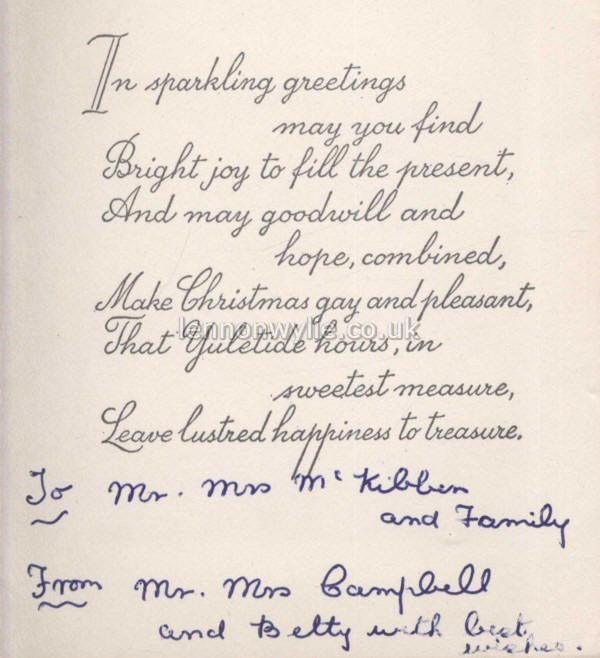 In sparkling greetings
may you find
Bright joy to fill the present,
And may goodwill and
hope, combined,
Make Christmas gay and pleasant,
lennonwylie.co.uk
That Yuletide hours, in
sweetest measure,
Leave lustred happiness to treasure.
To Mr. Mrs McKibben
and Family
From Mr. Mrs Campbell
and Betty with best
wishes.